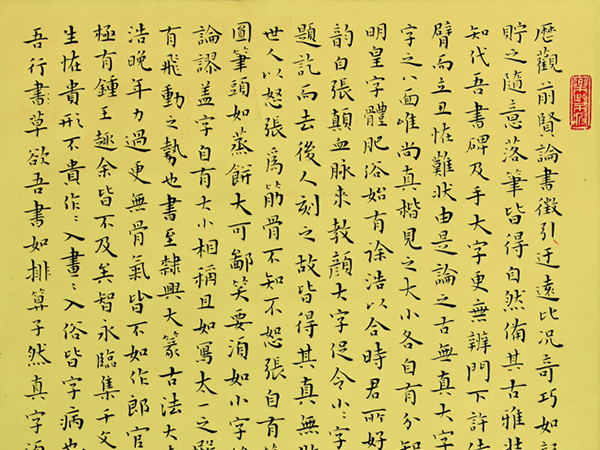 歷觀前賢論書徵引迂遠比況奇巧如
貯之隨意落筆皆得自然備其古雅壯
知代吾書碑及手大字更無辨門下許侍
臂而立丑怪難狀由是論之古無真大字
字之八面唯尚真楷見之大小各自有分智
明皇字體肥俗始有徐浩以合時君所好
韵自張顛血脉來教顏大字促令小〻字
題訖而去後人刻之故皆得其真無
世人以怒張為筋骨不知不怒張自有筋
圓筆頭如蒸餅大可鄙笑要須如小字
論謬盖字自有大小相稱且如寫太一之殿
有飛動之勢也書至隸興大篆古法大
浩晚年力過更無骨氣皆不如作郎官
極有鍾王趣余皆不及矣智永臨集千文
生怪貴形不貴作〻入畫〻入俗皆字病也
吾行書草欲吾書如排算子然真字須